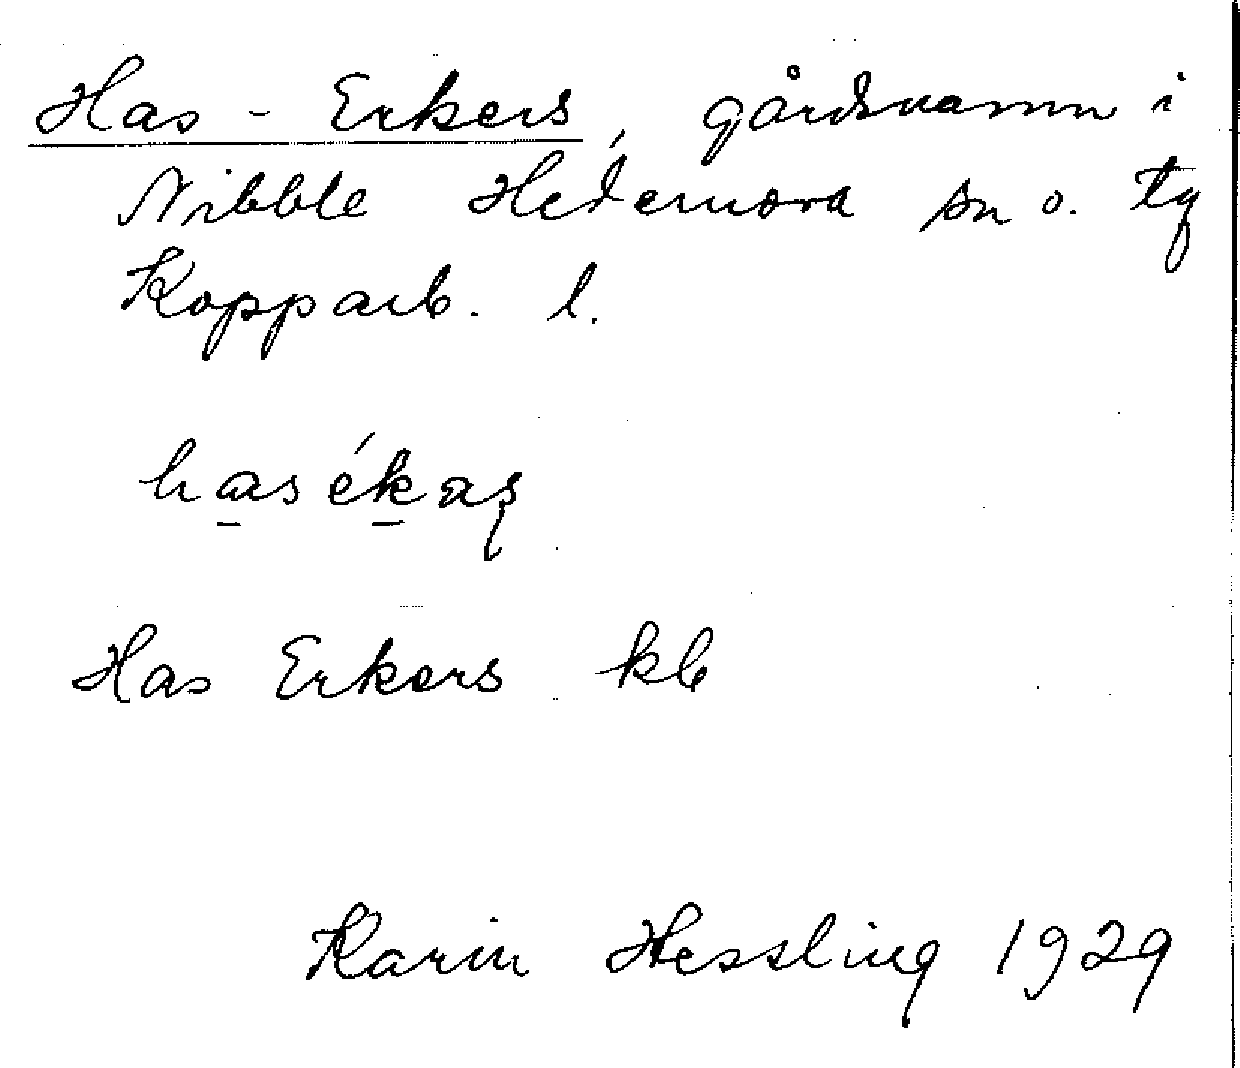 Has - Erkers, gårdsnamn i
Nibble Hedemora sn o. tg
Kopparb. l.
hasékas̨
Has Erkers kb
Karin Hessling 1929